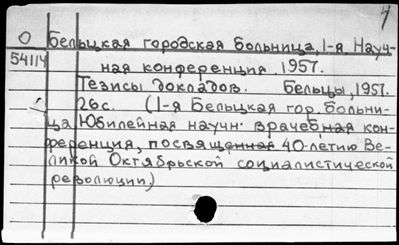 4
О Бельцкая городская больница, 1-я Науч-
54114 ная конференция, 1957.
Тезисы докладов. Бельцы, 1957.
26с. (1-я Бельцкая гор. больни-
ца. Юбилейная научн. врачебная кон-
ференция, посвященная 40-летию Ве-
ликой Октябрьской социалистической
революции)